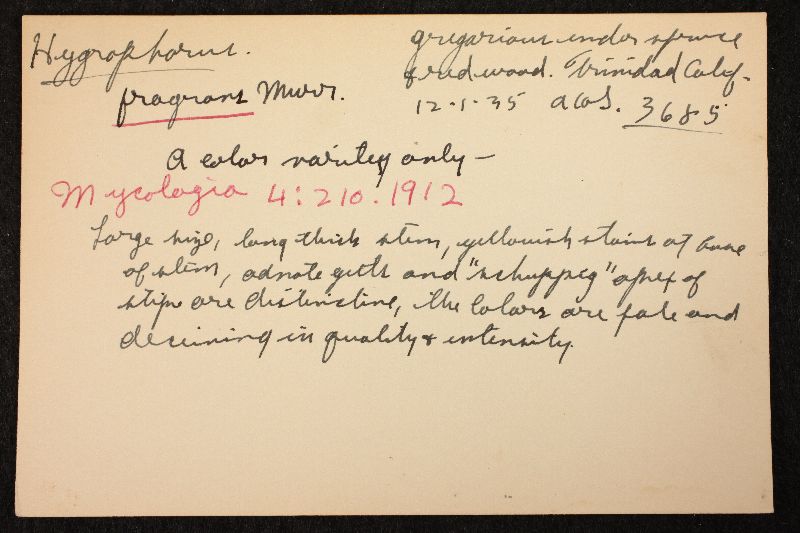 Hygrophorus.
fragrans Murr.
gregarious under spruce
& redwood. Trinidad Calif.
12-1-35 3685
A color variety only —
Mycologia 4:210.1912
Large size, long thick stem, yellowish stains at base
of stem, adnate gills and "schuppig" apex of
stipe are distinctive, the colors are pale and
deceiving in quality & intensity.